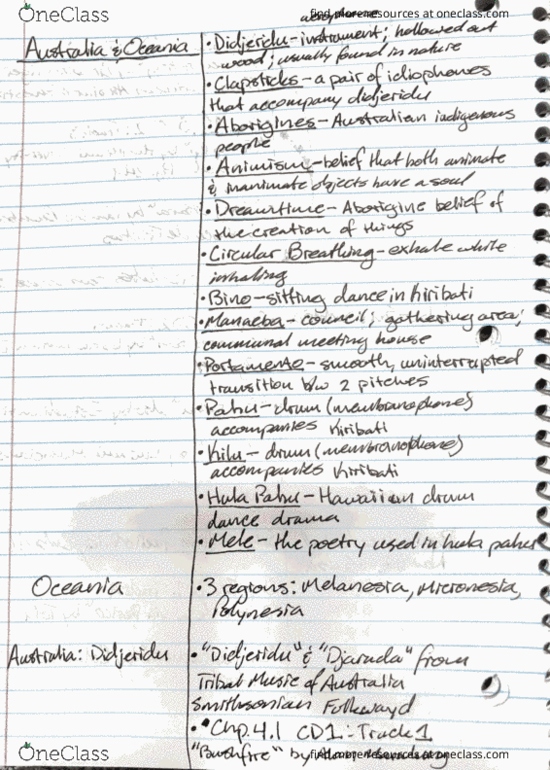 OneClass
aerophone
find more resources at oneclass.com
Australia & Oceania
• Didjeridu - instrument; hollowed out
wood; usually found in nature
• Clapsticks - a pair of idiophones
that accompany didjeridu
• Aborigines - Australian indigenous
people
• Animism - belief that both animate
& inanimate objects have a soul
• Dreamtime - Aborigine belief of
the creation of things
• Circular Breathing - exhale while
inhaling
• Bino - sitting dance in Kiribati
• Manaeba - council; gathering area;
communal meeting house
• Portamento - smooth, uninterrupted
transition b/w 2 pitches
• Pahu - drum (membranophone)
accompanies Kiribati
• Kilu - drum (membranophone)
accompanies Kiribati
• Hula Pahu - Hawaiian drum
dance drama
• Mele - the poetry used in hula pahu
Oceania
• 3 regions: Melanesia, Micronesia,
Polynesia
Australia: Didjeridu
• "Didjeridu" & "Djarada" from
Tribal Music of Australia
Smithsonian Folkways
• Chp. 4.1 CD1: Track 1
"Bushfire" by
OneClass
find more resources at oneclass.com